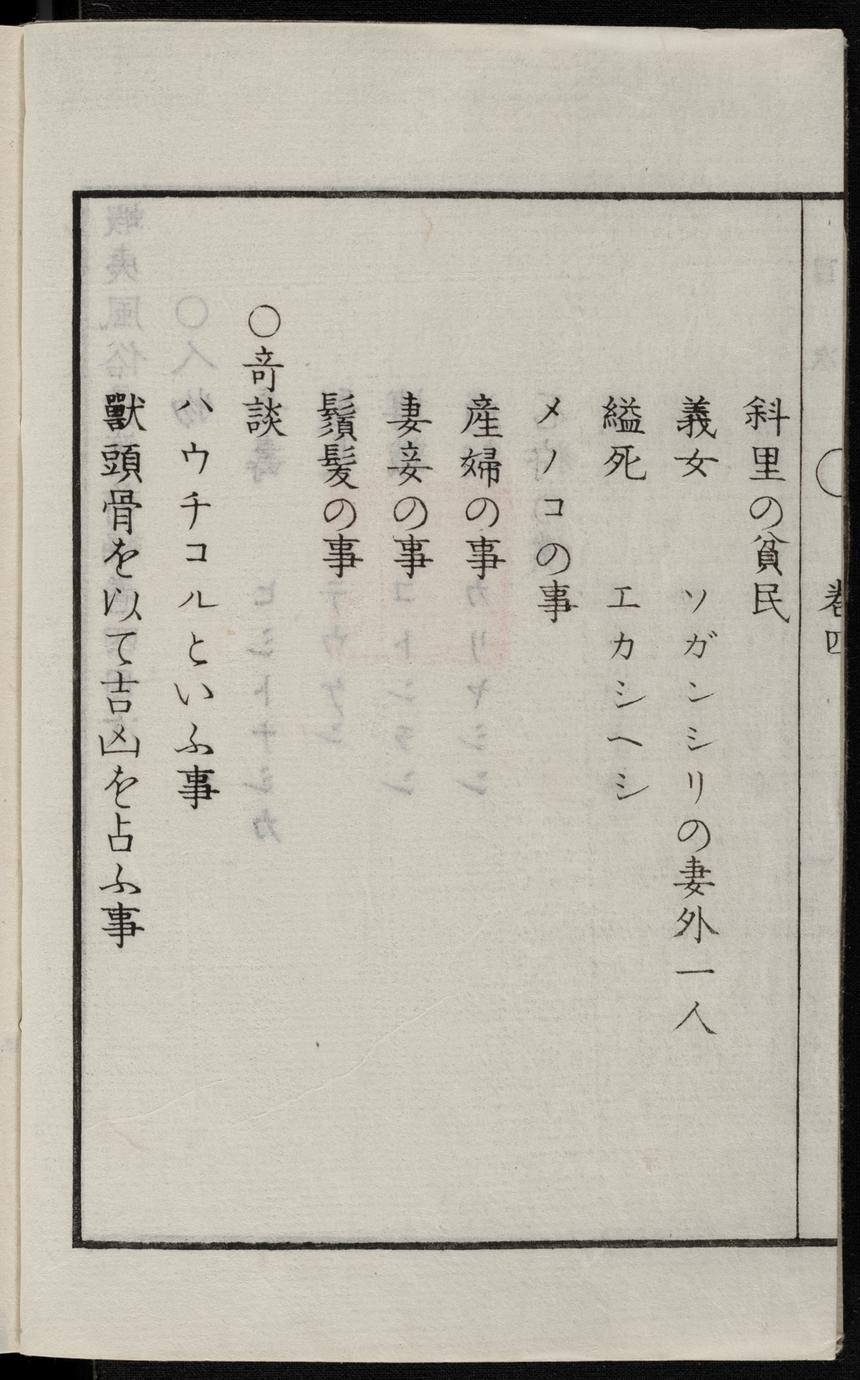 巻四
斜里の貧民
義女 ソガンシリの妻外一人
縊死 エカシヘシ
メノコの事
産婦の事
妻妾の事
鬚髪の事
○竒談
ハウチコルといふ事
獸頭骨を以て吉凶を占ふ事